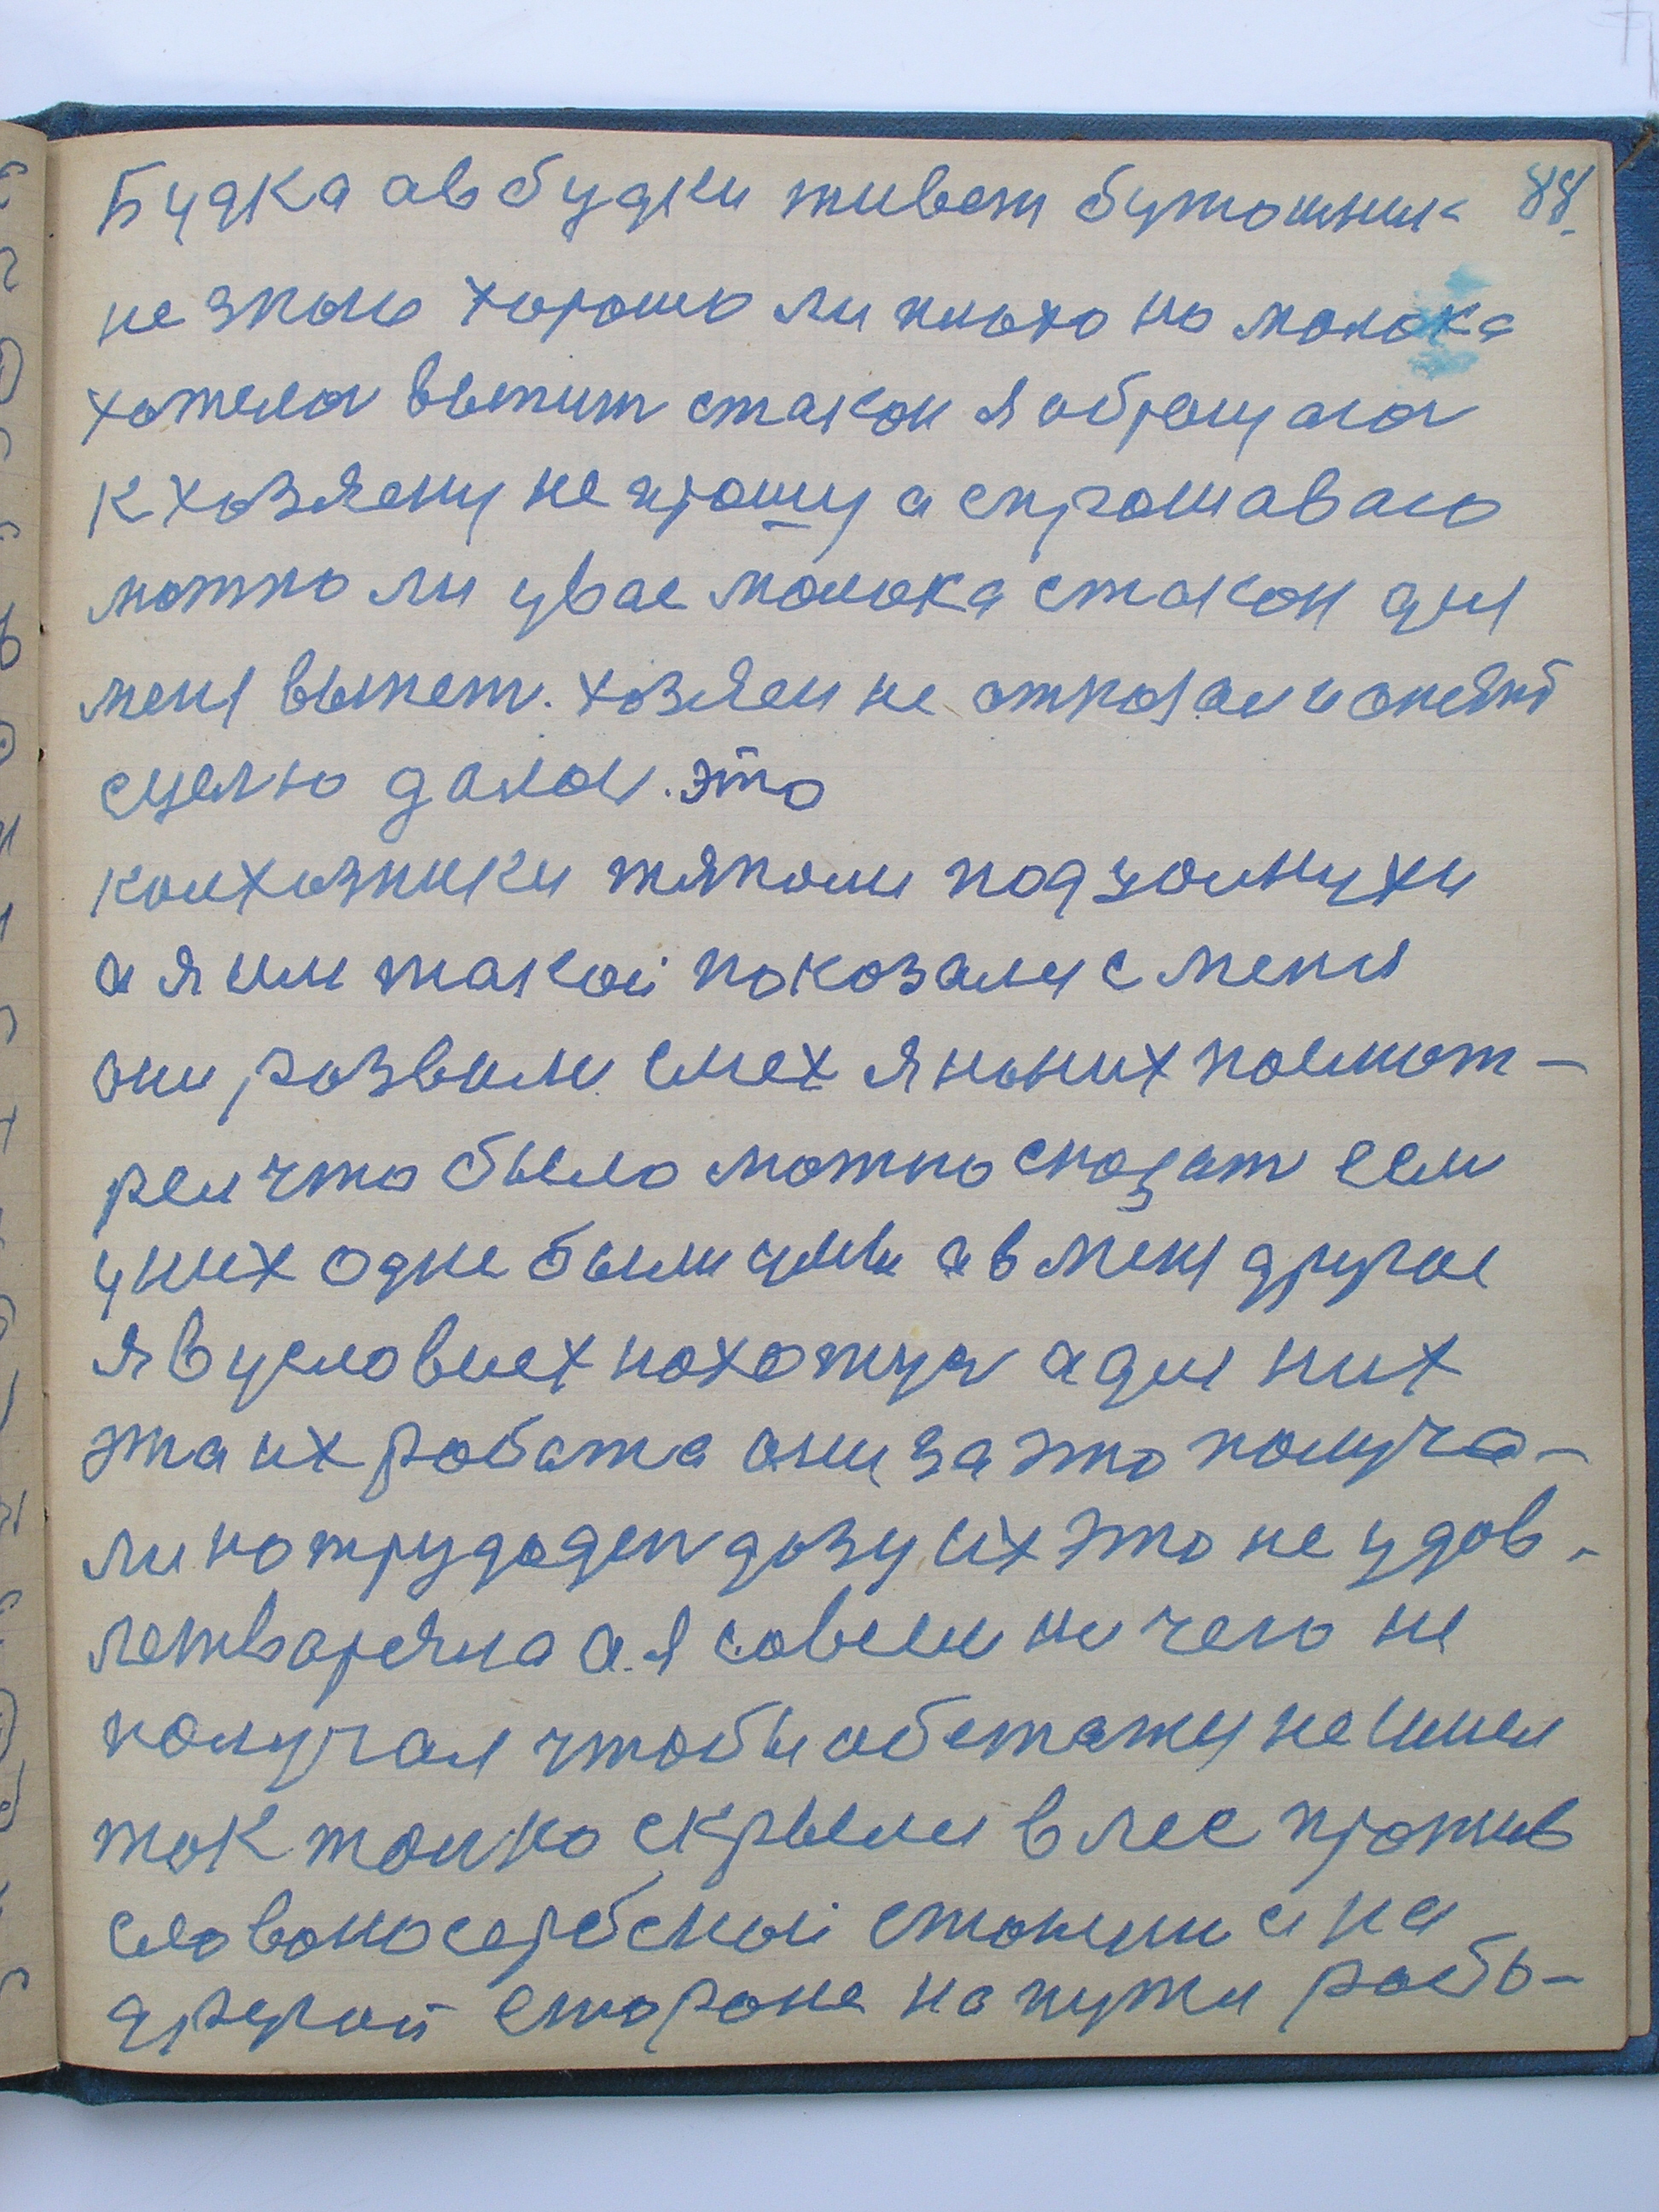 Будка а в будки живет бутошник 88.
не знаю хорошо ли плохо но молока
хотела выпит стакан я обращала
к хозяену не прошу а спрошаваю
можно ли у вас молока стакан для
меня выпет. хозяен не отказал и опять
с целю дала. это
колхозники тяпали подзолнухи
а я им такой показались меня
они розвили смех я на них посмот-
рел что было можно сказат если
у них одне были цели а в меня другое
я в условиех нахожуся а для них
эта их робота они за это получа-
ли на трудоден дозу их это не удов-
летваряна а я совсем ни чего не
получал чтобы об етажи не имел
так толко скрыли в лес против
словоносербской станции а на
другой стороне на пути робо-